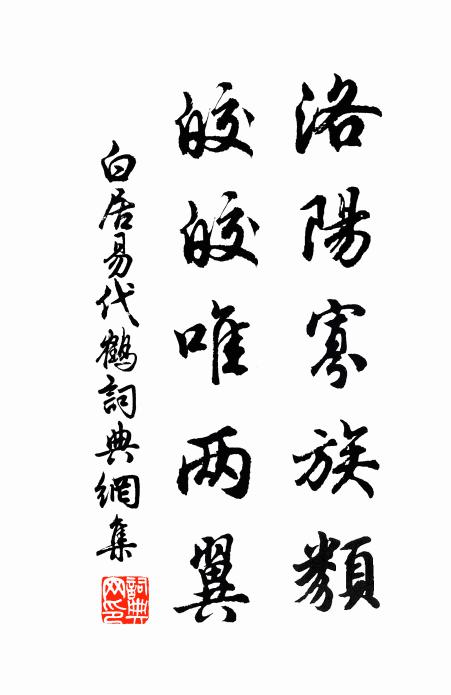 洛陽寡族類
皎皎唯两翼
白居易代鶴詞典網集
詞典網印